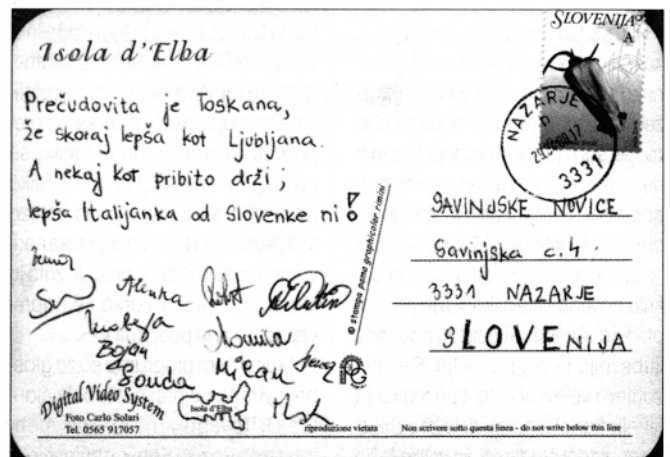 Isola d'Elba
Prečudovita je Toskana,
že skoraj lepša kot Ljubljana.
A nekaj kot pribito drži;
lepša Italijanka od Slovenke ni!
Alenka
Mateja
Bojan
Digital Video System
Foto Carlo Solari
Tel. 0565 917057
Isola d'Elba
© stampa nama graphicolor rimini
riproduzione vietata
SLOVENIJA
A
NAZARJE
3331
SAVINJSKE NOVICE
Savinjska c. 4
3331 NAZARJE
SLOVENIJA
Non scrivere sotto questa linea - do not write below this line